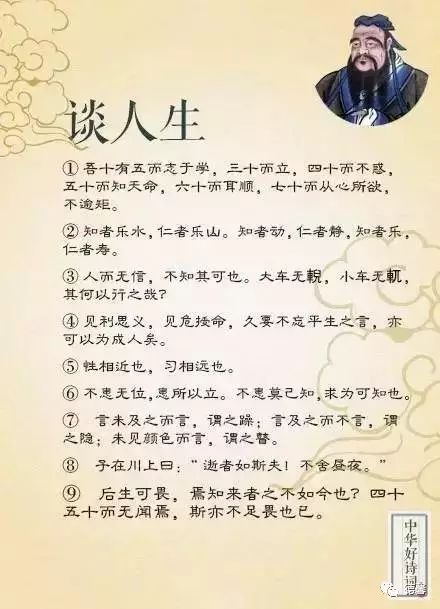 谈人生
① 吾十有五而志于学，三十而立，四十而不惑，
五十而知天命，六十而耳顺，七十而从心所欲，
不逾矩。
② 知者乐水，仁者乐山。知者动，仁者静，知者乐，
仁者寿。
③ 人而无信，不知其可也。大车无輗，小车无軏，
其何以行之哉？
④ 见利思义，见危授命，久要不忘平生之言，亦
可以为成人矣。
⑤ 性相近也，习相远也。
⑥ 不患无位，患所以立。不患莫己知，求为可知也。
⑦ 言未及之而言，谓之躁；言及之而不言，谓
之隐；未见颜色而言，谓之瞽。
⑧ 子在川上曰：“逝者如斯夫！不舍昼夜。”
⑨ 后生可畏，焉知来者之不如今也？四十
五十而无闻焉，斯亦不足畏也已。
中华好诗词